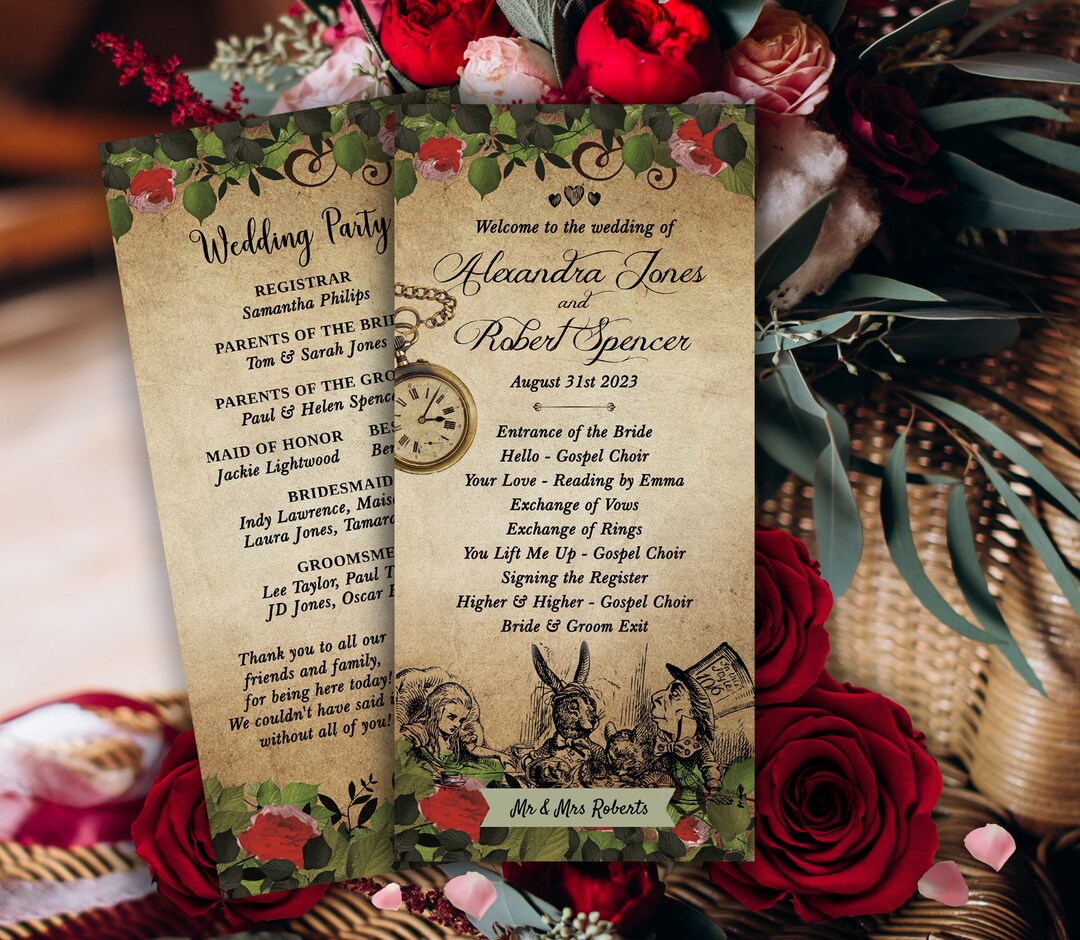 Wedding Party
REGISTRAR
Samantha Philips
PARENTS OF THE
Tom & Sarah Jones
PARENTS OF THE
Paul & Helen
MAID OF HONOR
Jackie Lightwood
Indy Lawrence,
Laura Jones,
Lee Taylor, Paul
JD Jones, Oscar
Thank you to all our
friends and family,
for being here today!
We couldn't have said
without all of you!
Welcome to the wedding of
Alexandra Jones
and
Robert Spencer
August 31st 2023
Entrance of the Bride
Hello - Gospel Choir
Your Love - Reading by Emma
Exchange of Vows
Exchange of Rings
You Lift Me Up - Gospel Choir
Signing the Register
Higher & Higher - Gospel Choir
Bride & Groom Exit
In this
Style
10/6
Mr & Mrs Roberts